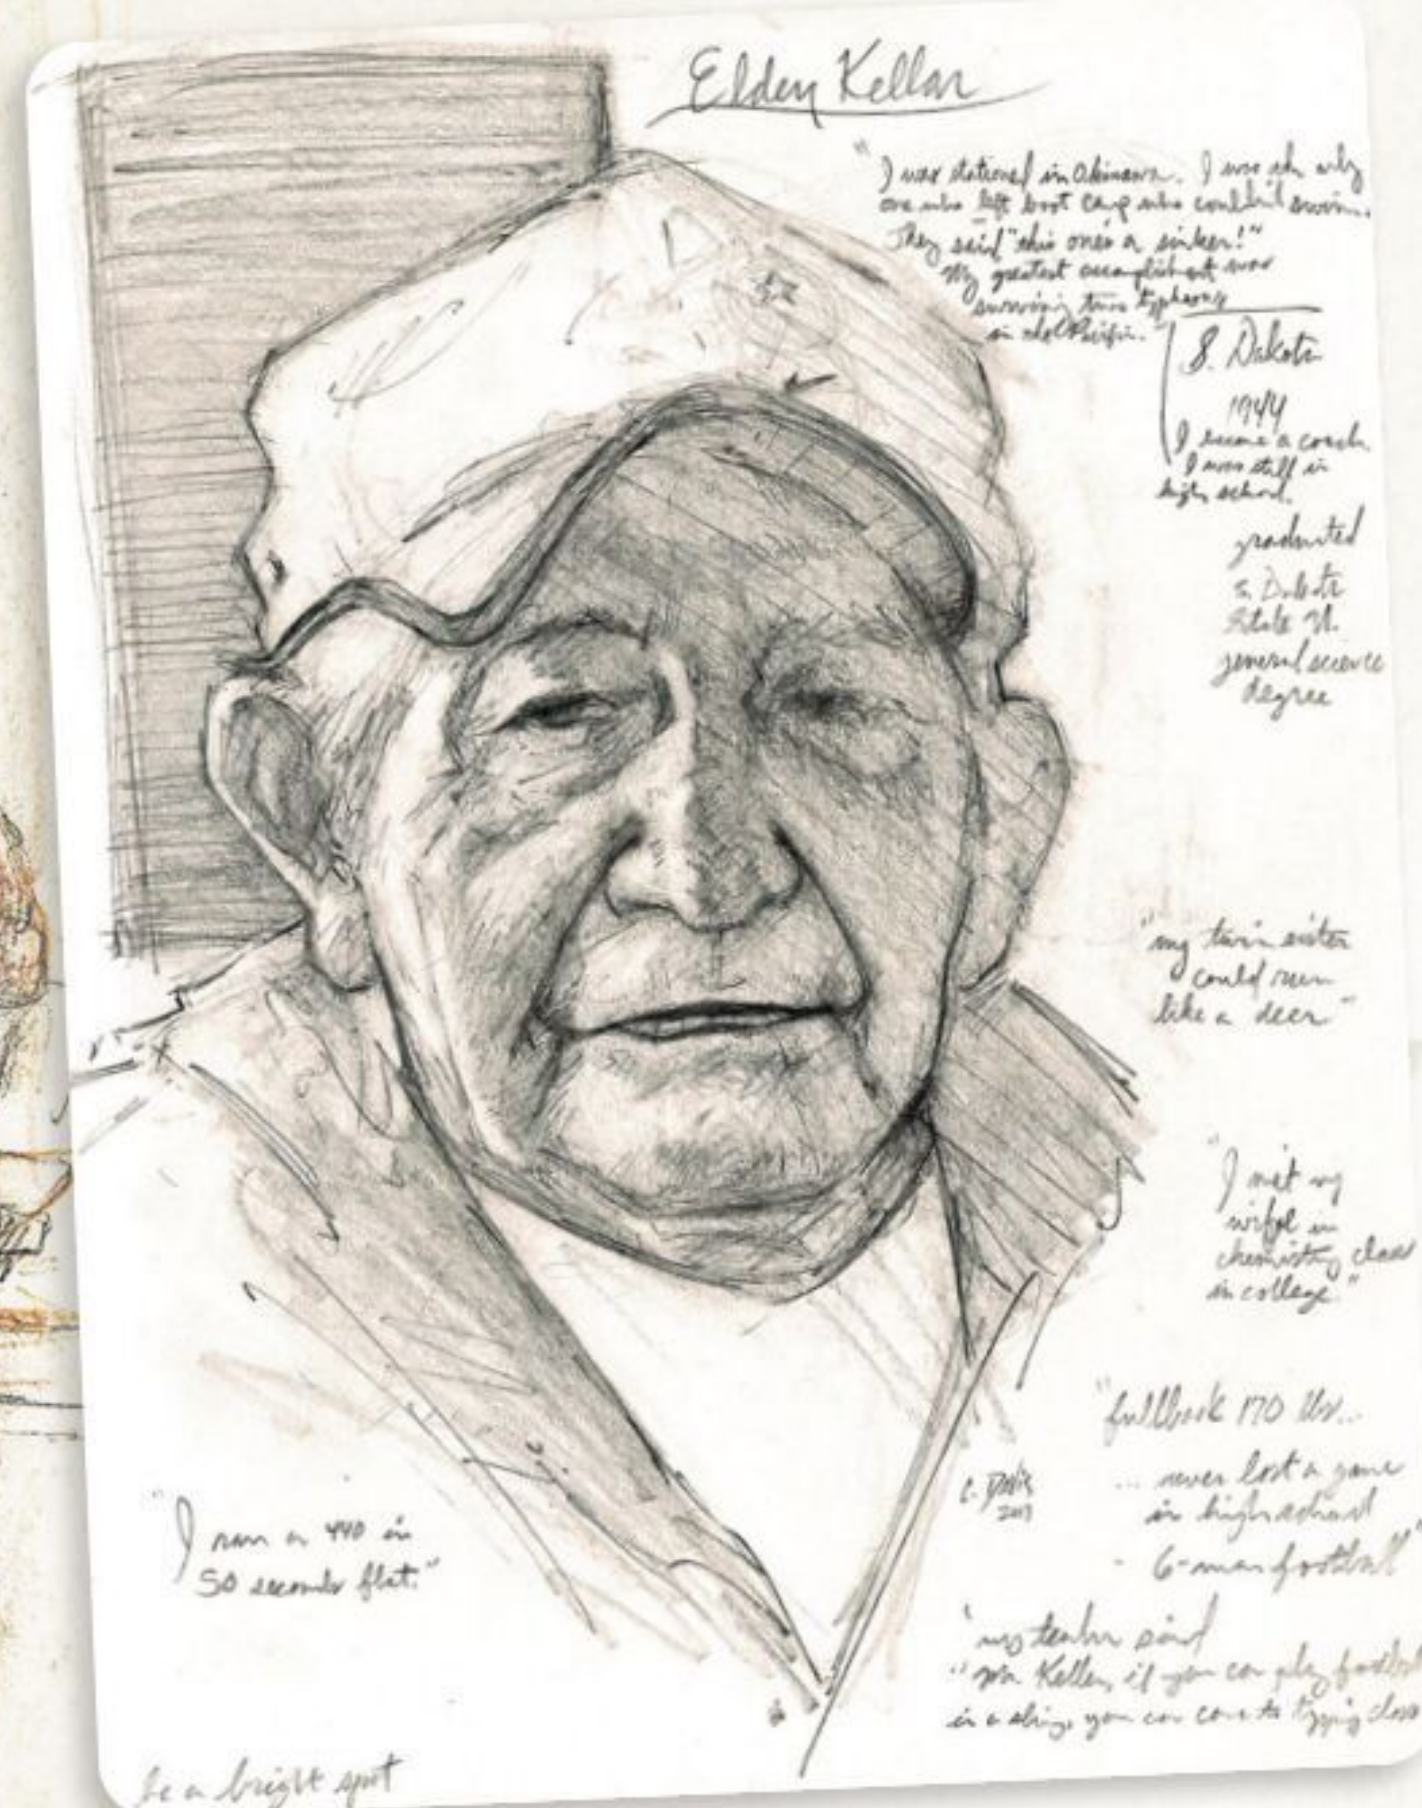 Elden Kellar
"I was stationed in Okinawa. I was the only
one who left boot camp who couldn't swim.
They said "this one's a sinker!"
My greatest accomplishment was
surviving two typhoons
in the Pacific."
S. Dakota
1944
I became a coach
I was still in
high school.
graduated
S. Dakota
State U.
general science
degree
"my twin sister
could run
like a deer"
"I met my
wife in
chemistry class
in college."
"fullback 170 lbs...
... never lost a game
in high school
- 6-man football"
C. Davis
"I ran a 440 in
50 seconds flat."
"my teacher said
"Mr. Kellar, if you can play football
in a sling, you can come to typing class
be a bright spot